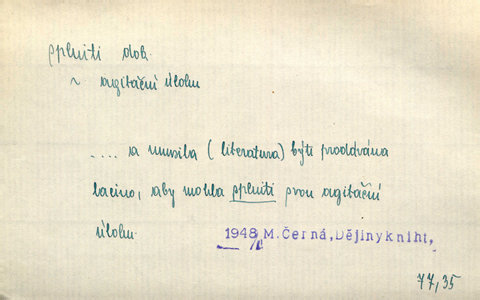 splniti dok.
~ agitační úlohu
.... a musila (literatura) býti prodávána
lacino, aby mohla splniti svou agitační
úlohu
1948 M.Černá,Dějinykniht,
77,35